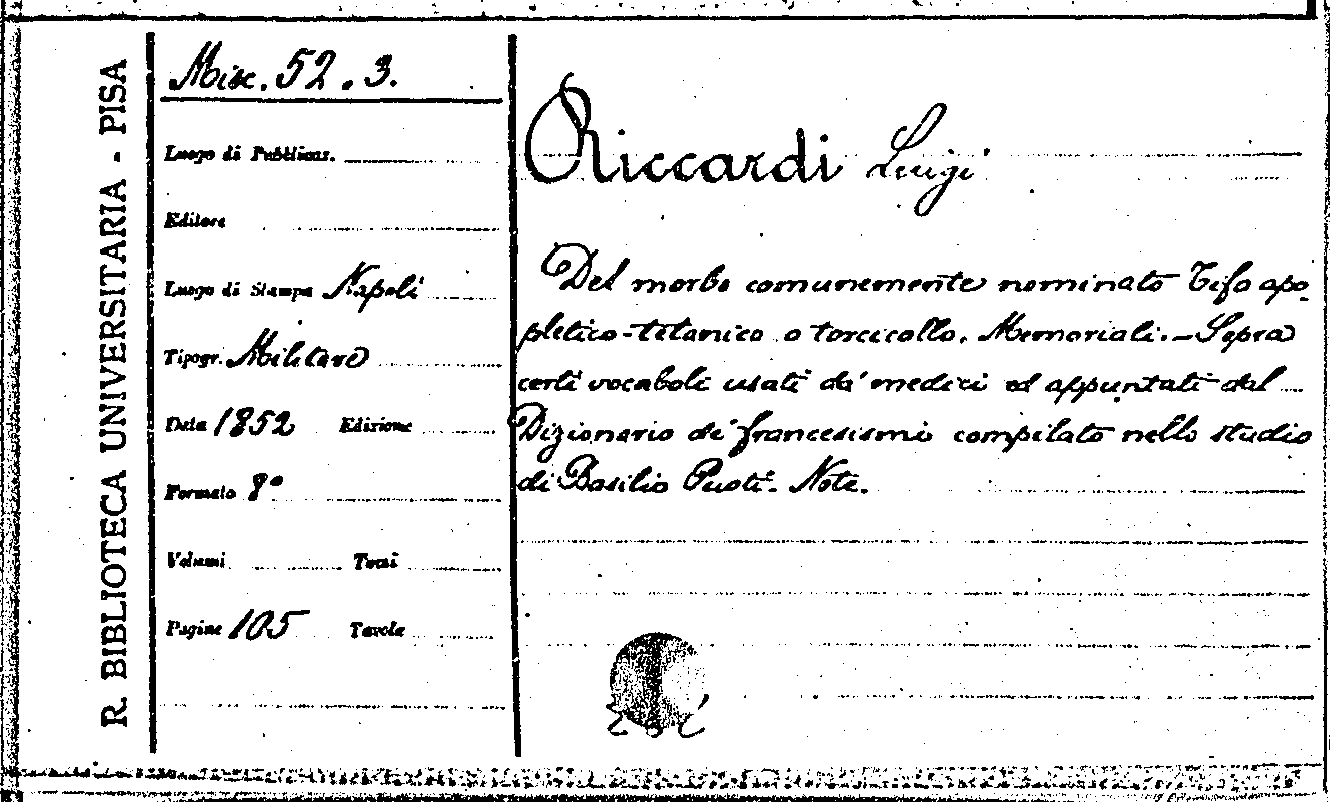 R. BIBLIOTECA UNIVERSITARIA - PISA
Misc. 52. 3.
Luogo di Pubblicaz.
Editore
Luogo di Stampa Napoli
Tipogr. Militare
Data 1852 Edizione
Formato 8°
Volumi Tomi
Pagine 105 Tavole
Riccardi Luigi
Del morbo comunemente nominato Tifo apo-
pletico-tetanico o torcicollo. Memoriali. - Sopra
certi vocaboli usati da' medici ed appuntati dal
Dizionario de' francesismi compilato nello studio
di Basilio Puoti. Note.